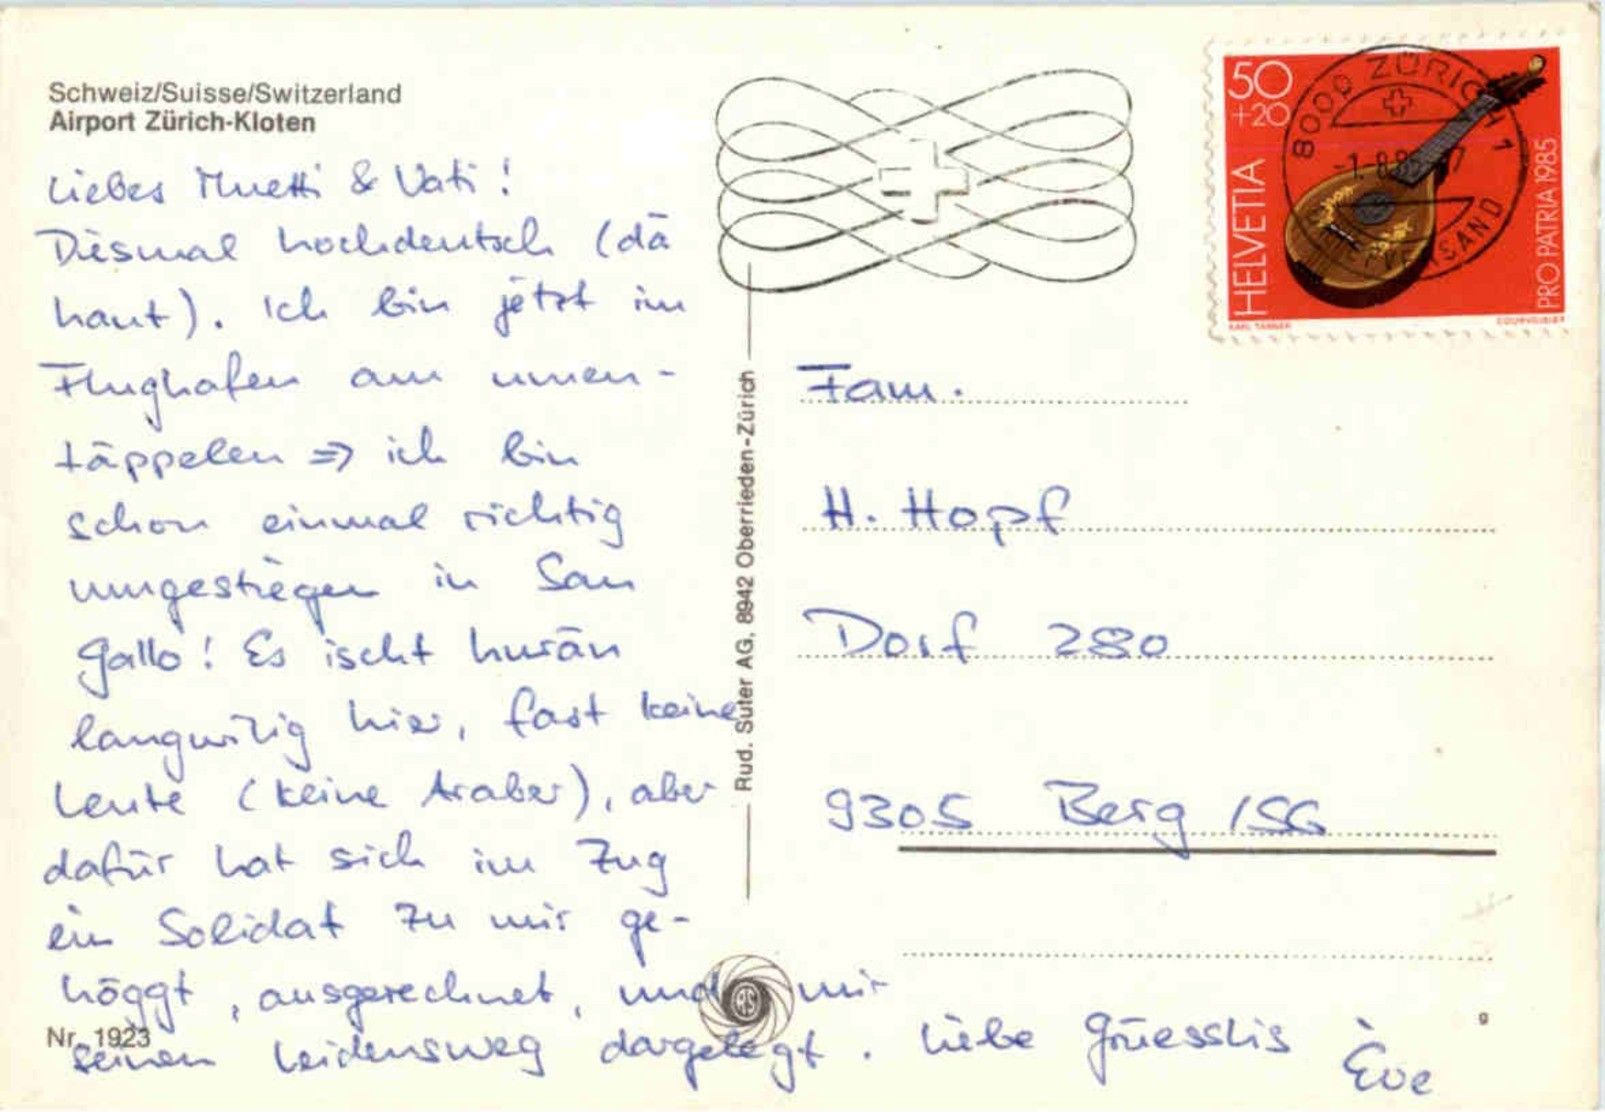 Schweiz/Suisse/Switzerland
Airport Zürich-Kloten
Liebes Muetti & Vati!
Diesmal hochdeutsch (dā
haut). Ich bin jetzt im
Flughafen am umen-
täppelen ⇒ ich bin
schon einmal richtig
umgestiegen in San
Gallo! Es ischt hurän
langwilig hier, fast keine
Leute (keine Araber), aber
dafür hat sich im Zug
ein Solidat zu mir ge-
höggt, ausgerechnet, und mir
seinen Leidensweg dargelegt. Liebe Grüesslis
Eve
Nr. 1923
Rud. Suter AG, 8942 Oberrieden-Zürich
RS
50
+20
HELVETIA
PRO PATRIA 1985
KARL TANNER
COURVOISIER
8000 ZÜRICH 1
-1.-8.85
Fam.
H. Hopf
Dorf 280
9305 Berg /SG
g